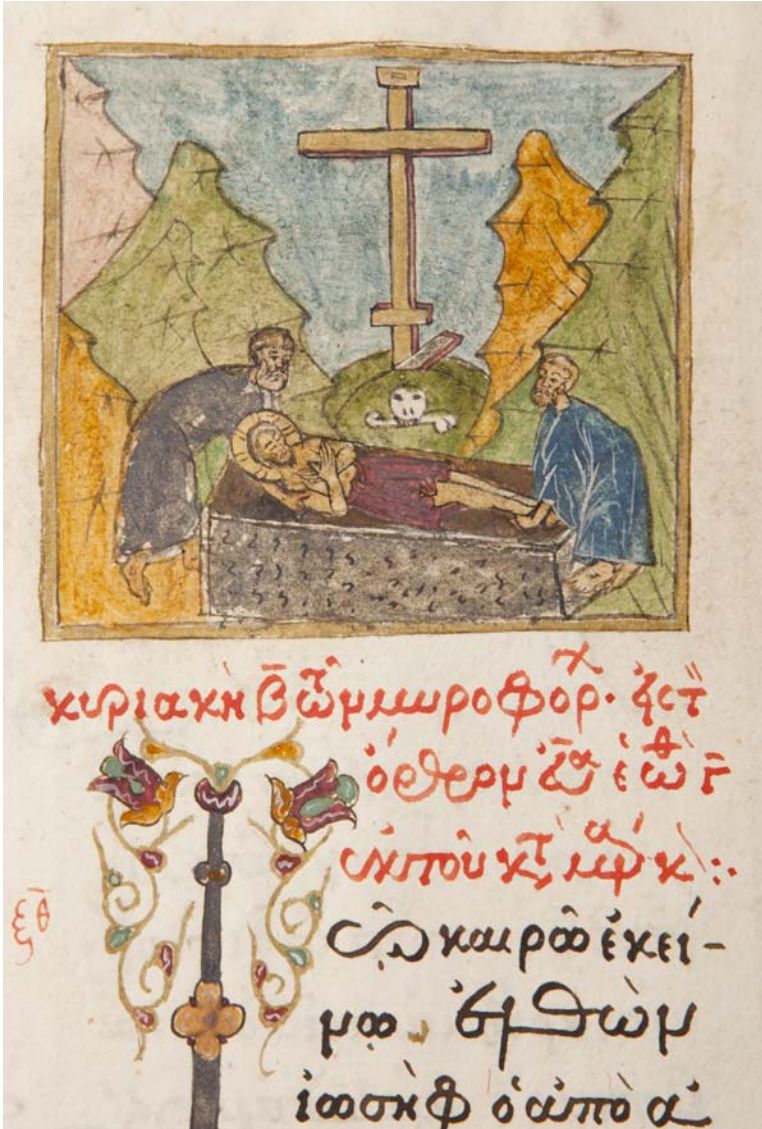 κυριακὴ β̅ τῶν μυροφόρ. εἰς τ
ὄρθρον ἑωθ γ̅
ἐκ τοῦ κτ μρκ :·
ξθ̅
Τῶ καιρῶ ἐκεί-
νω. ἐλθὼν
ἰωσὴφ ὁ ἀπὸ ἀ